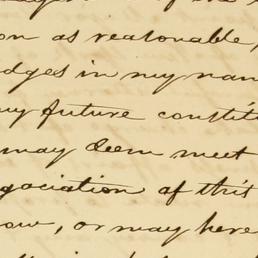 on as reasonable,
dges in my nam
my future constit
may deem meet
gociation of this
ow, or may here